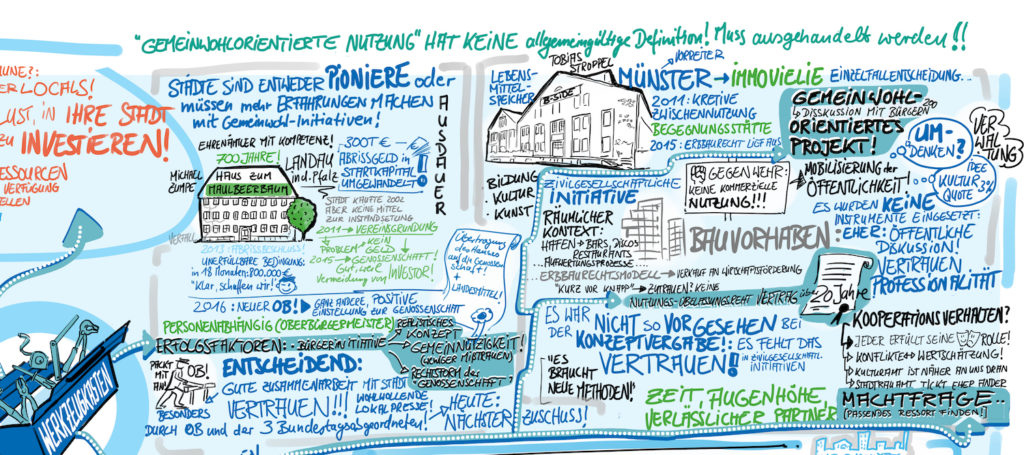 "GEMEINWOHLORIENTIERTE NUTZUNG" HAT KEINE allgemeingültige Definition! Muss ausgehandelt werden!!
ER LOCALS!
LUST, in IHRE STADT
ZU INVESTIEREN!
ESSOURCEN
VERFÜGUNG
ELLEN
WERKZEUGKASTEN
STÄDTE SIND ENTWEDER PIONIERE oder
müssen mehr ERFAHRUNGEN MACHEN
mit Gemeinwohl-Initiativen!
AUSDAUER
EHRENÄMTLER MIT KOMPETENZ!
700 JAHRE!
LANDAU
in d. Pfalz
MICHAEL
ZUMPE
HAUS ZUM
MAULBEERBAUM
VERFALL
300T €
ABRISSGELD in
STARTKAPITAL
UMGEWANDELT
STADT KAUFTE 2002
ABER KEINE MITTEL
ZUR INSTANDSETZUNG
2011 → VEREINSGRÜNDUNG
PROBLEM KEIN GELD
2015 → GENOSSENSCHAFT!
Gut, weil
Vermeidung von INVESTOR!
2013: ABRISSBESCHLUSS!
UNERFÜLLBARE BEDINGUNG:
in 18 Monaten: 800.000€
"Klar, schaffen wir!"
Übertragung
des Hauses
auf die Genossen-
schaft!
+
LANDESMITTEL!
2016: NEUER OB!
GANZ ANDERE, POSITIVE
EINSTELLUNG ZUR GENOSSENSCHAFT
PERSONENABHÄNGIG (OBERBÜRGERMEISTER)
ERFOLGSFAKTOREN: • BÜRGERINITIATIVE
REALISTISCHES
KONZEPT
GEMEINNÜTZIGKEIT!
(WENIGER MISTRAUEN)
RECHTSFORM der
GENOSSENSCHAFT!
PACKT MIT AN!
OB!
BESONDERS
ENTSCHEIDEND:
GUTE ZUSAMMENARBEIT MIT STADT
VERTRAUEN!!!
WOHLWOLLENDE
LOKALPRESSE!
DURCH OB und der 3 Bundestagsabgeordneten!
HEUTE:
NÄCHSTER
ZUSCHUSS!
LEBENS-
MITTEL-
SPEICHER
TOBIAS
STROPPEL
B-SIDE
• BILDUNG
• KULTUR
• KUNST
VORREITER
MÜNSTER → IMMOVIELIE
EINZELFALLENTSCHEIDUNG...
2011: KRETIVE
ZWISCHENNUTZUNG
BEGEGNUNGSSTÄTTE
2015: ERBBAURECHT LIEF AUS
GEMEINWOHL-
DISSKUSSION MIT 200 BÜRGERN
ORIENTIERTES
PROJEKT!
UM-
DENKEN?
VERWALTUNG
IDEE
KULTUR
QUOTE 3%
ZIVILGESELLSCHAFTLICHE
INITIATIVE
RÄUMLICHER
KONTEXT:
HAFEN → BARS, DISCOS
RESTAURANTS
AUFWERTUNGSPROZESSE...
GEGENWEHR:
KEINE KOMMERZIELLE
NUTZUNG!!!
MOBILISIERUNG der
ÖFFENTLICHKEIT!
ES WURDEN KEINE
INSTRUMENTE EINGESETZT:
EHER: ÖFFENTLICHE
DISKUSION!
VERTRAUEN
PROFESSIONALITÄT
BAUVORHABEN:
ERBBAURECHTSMODELL → VERKAUF AN WIRTSCHAFTSFÖRDERUNG
"KURZ VOR KNAPP" → ZUTRAUEN? KEINE
NUTZUNGS-ÜBERLASSUNGSRECHT VERTRAG über
20 Jahre!
ES WAR
DER NICHT SO VORGESEHEN BEI
KONZEPTVERGABE!: ES FEHLT DAS
VERTRAUEN!
IN ZIVILGESELLSCHAFTL.
INITIATIVEN
"ES
BRAUCHT
NEUE METHODEN!"
ZEIT, AUGENHÖHE,
VERLÄSSLICHER PARTNER
KOOPERATIONSVERHALTEN?
JEDER ERFÜLLT SEINE ROLLE!
KONFLIKTE ↔ WERTSCHÄTZUNG!
KULTURAMT IST NÄHER AN UNS DRAN
STADTBAUAMT TICKT EHER ANDER
MACHTFRAGE...
(PASSENDES RESSORT FINDEN!)